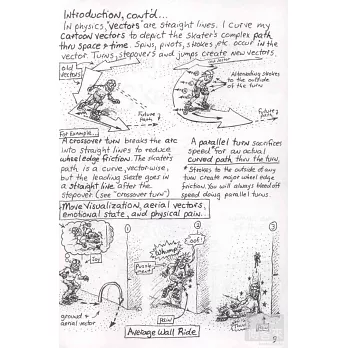 Introduction, cont'd...
In physics, vectors are straight lines. I curve my
cartoon vectors to depict the skater's complex path
thru space & time. Spins, pivots, strokes, etc. occur in the
vector. Turns, stepovers and jumps create new vectors.
old
vectors
Future
path
Alternating strokes
to the outside
of the turn
Future
path
For Example...
A crossover turn breaks the arc
into straight lines to reduce
wheel edge friction. The skater's
path is a curve, vector-wise,
but the leading skate goes in
a straight line after the
stepover (see "crossover turn")
A parallel turn sacrifices
speed* for an actual
curved path thru the turn.
* Strokes to the outside of any
turn create major wheel edge
friction. You will always bleed off
speed doing parallel turns.
Move visualization, aerial vectors,
emotional state, and physical pain...
1
Joy
ground &
aerial vector
2
Whump!
Oof!
Puzzle-
ment
Pain!
3
Average Wall Ride
9